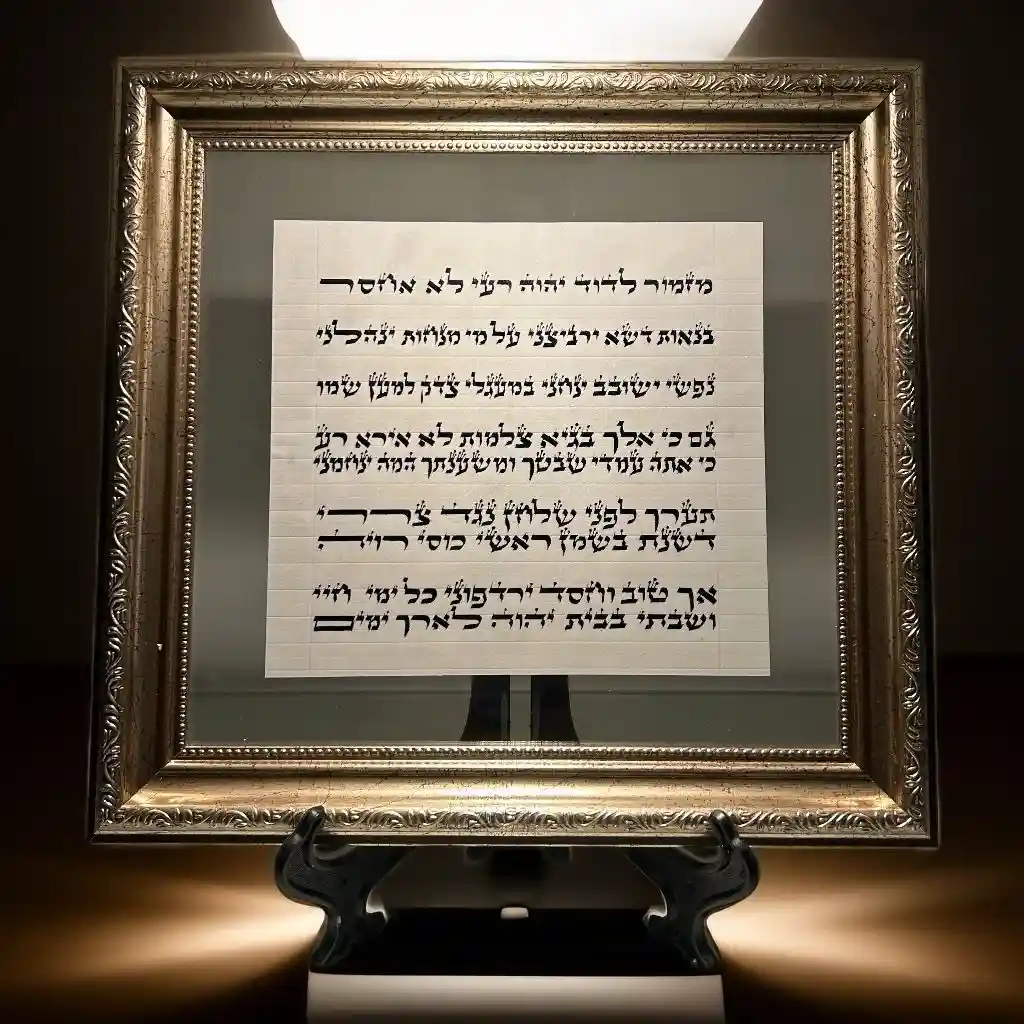 מזמור לדוד יהוה רעי לא אחסר
בנאות דשא ירביצני על מי מנוחות ינהלני
נפשי ישובב ינחני במעגלי צדק למען שמו
גם כי אלך בגיא צלמות לא אירא רע
כי אתה עמדי שבטך ומשענתך המה ינחמני
תערך לפני שלחן נגד צררי
דשנת בשמן ראשי כוסי רויה
אך טוב וחסד ירדפוני כל ימי חיי
ושבתי בבית יהוה לארך ימים